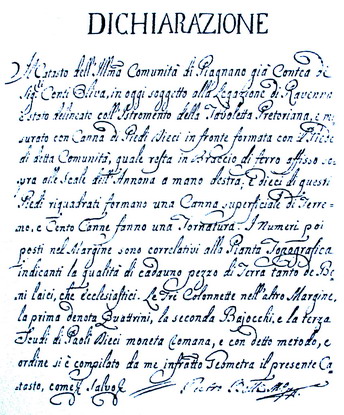 DICHIARAZIONE
Il Catasto dell'Illma Comunità di Piagnano già Contea de
Sigri Conti Oliva, in oggi soggetto alla Legazione di Ravenna
è stato delineato coll'Istromento della Tavoletta Pretoriana, e mi
surato con Canna di Piedi Dieci in fronte formata con il Piede
di detta Comunità, quale resta in Braccio di ferro affisso so
pra alle Scale dell'Annona a mano destra. E dieci di questi
Piedi riquadrati formano una Canna superficiale di Terre
no, e Cento Canne fanno una Tornatura. I Numeri poi
posti nel Margine sono correlativi alla Pianta Topografica
indicanti la qualità di cadauno pezzo di Terra tanto de Be
ni laici, che ecclesiastici. Le Tre Colonnette nell'altro Margine,
la prima denota Quattrini, la seconda Bajocchi, e la terza
Scudi di Paoli Dieci moneta Romana, e con detto metodo, e
ordine si è compilato da me infratto Geometra il presente Ca
tasto, come Salvo
Pietro